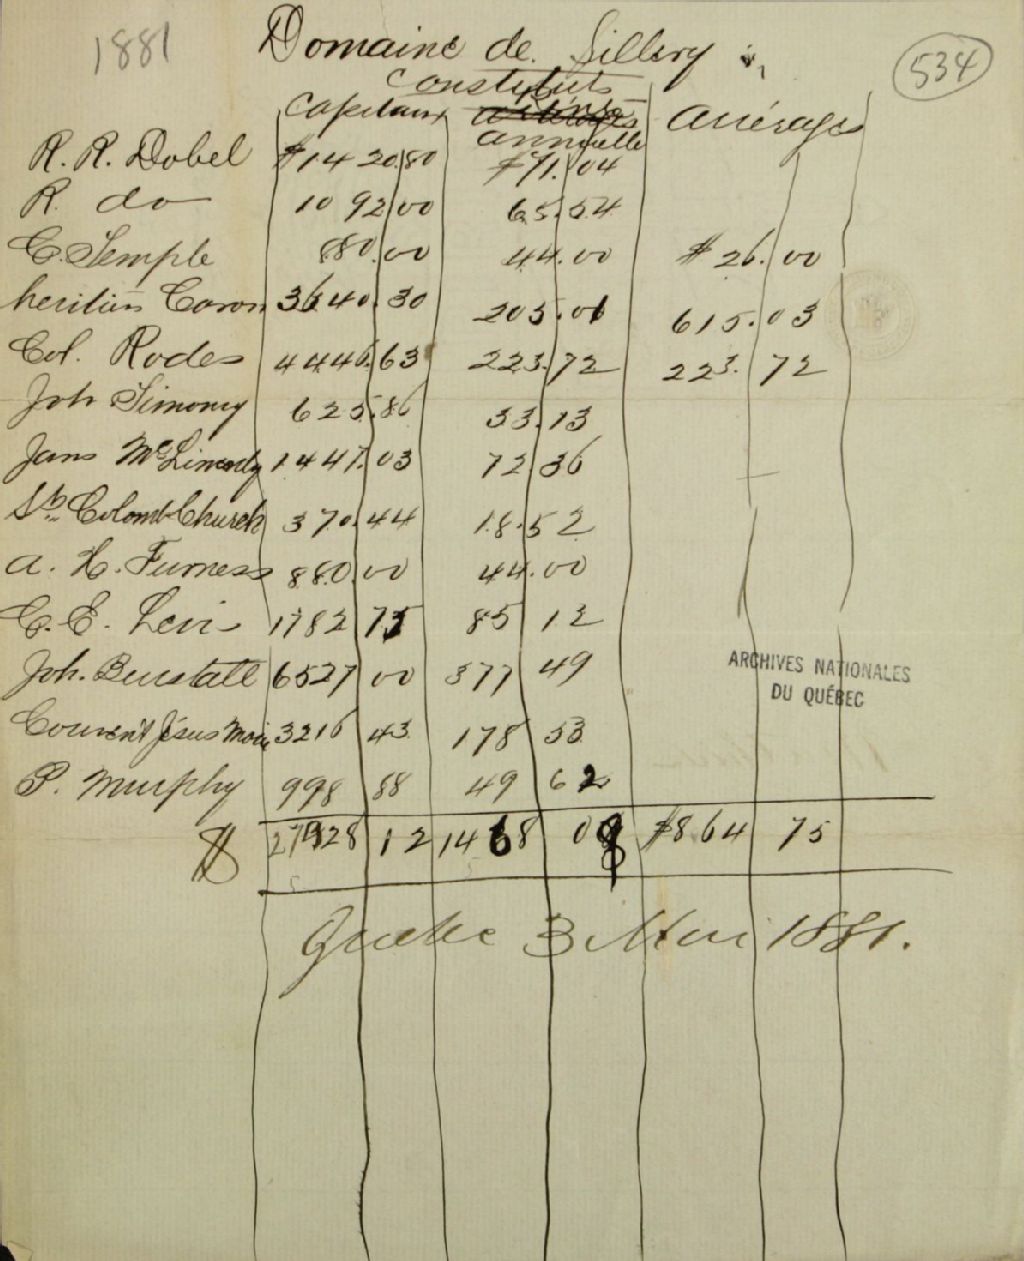 1881
Domaine de Sillery
534
Constituts
Capitaux annuelle Arrérages
R. R. Dobel $1420.80 $71.04
R. do 1092.00 65.54
C. Temple 880.00 44.00 $26.00
heritiers Caron 3640.30 203.01 615.03
Col. Rodes 4446.63 223.72 223.72
Joh Timony 625.86 33.13
Jams 1447.03 72 36
St. Colomb Church 370.44 18.52
A. H. Furness 880.00 44.00
C. E. Levi 1782 75 85 12
Joh. Burstall 6527 00 377 49
Couvent Jésus Marie 3216 43 178 53
P. Murphy 998 88 49 62
$ 27928 12 1468 08 $864 75
Quebec 3 Mai 1881.
ARCHIVES NATIONALES
DU QUÉBEC